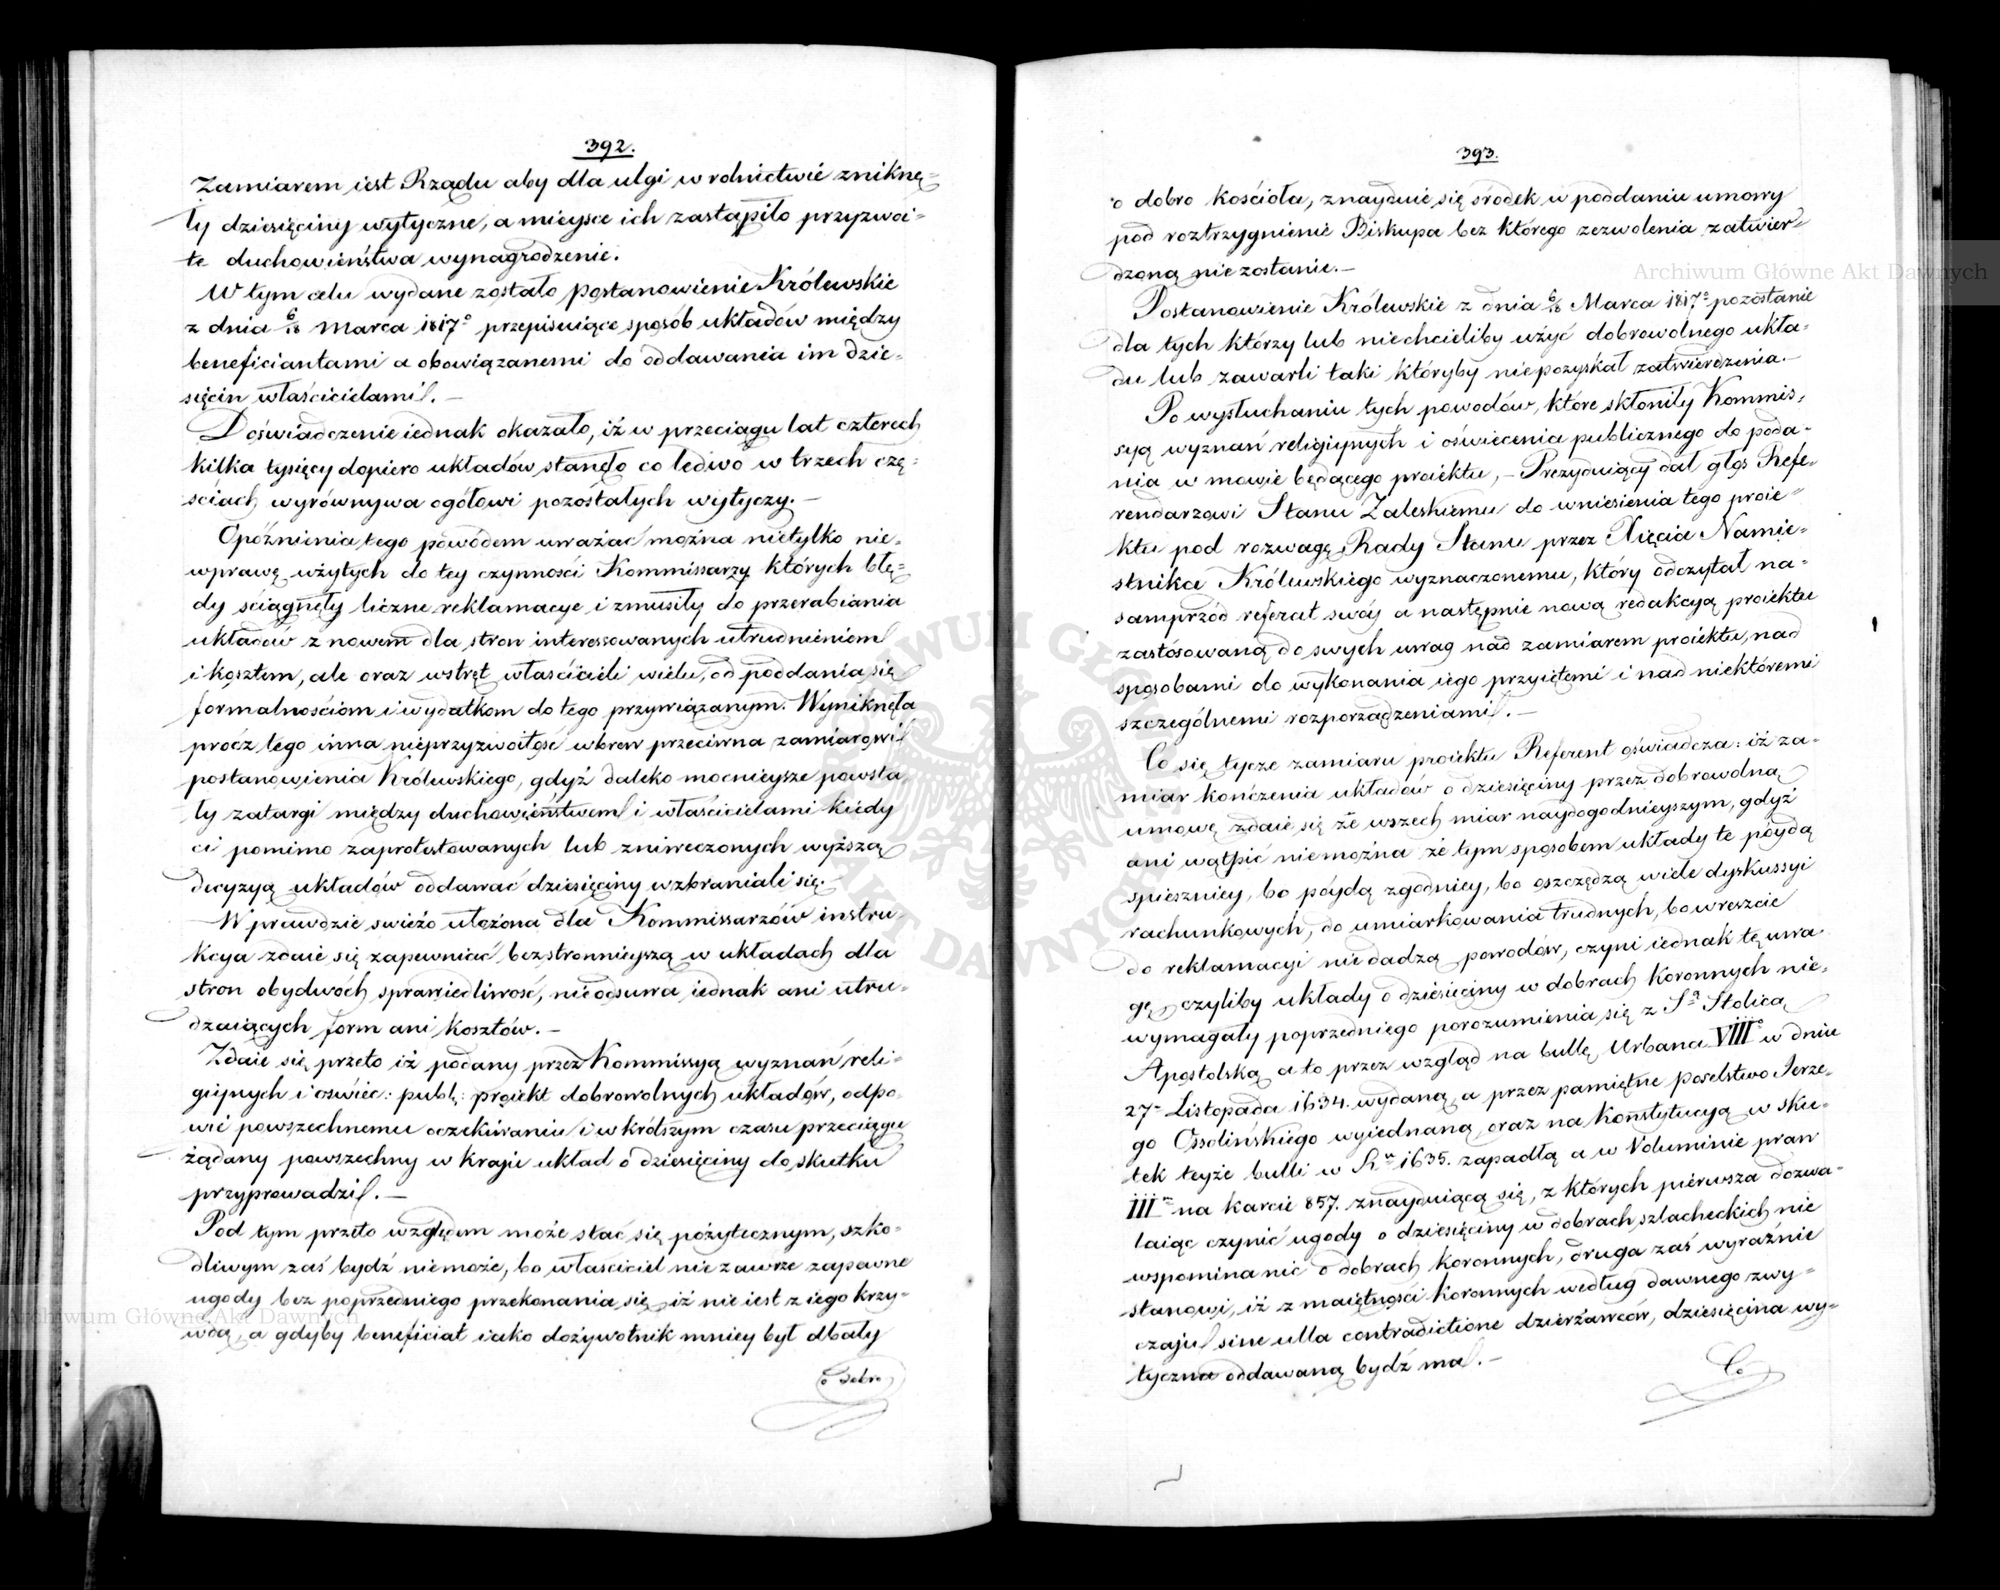 392.
Zamiarem iest Rządu aby dla ulgi w rolnictwie zniknę-
ły dziesięciny wytyczne, a mieysce ich zastąpiło przyzwoi-
te duchowieństwa wynagrodzenie.
W tym celu wydane zostało postanowienie Królewskie
z dnia 6/18 Marca 1817º przepisuiące sposób układów między
beneficiantami a obowiązanemi do oddawania im dzie-
sięcin właścicielami. —
Doświadczenie iednak okazało, iż w przeciągu lat czterech
kilka tysięcy dopiero układów stanęło co ledwo w trzech czę-
ściach wyrównywa ogółowi pozostałych wytyczy. —
Opóźnienia tego powodem uważać można nietylko nie-
wprawę użytych do tey czynności Kommissarzy których błę-
dy ściągnęły liczne reklamacye i zmusiły do przerabiania
układów z nowem dla stron interessowanych utrudnieniem
i kosztem, ale oraz wstręt właścicieli wielu, od poddania się
formalnościom i wydatkom do tego przywiązanym. Wyniknęła
prócz tego inna nieprzyzwoitość wbrew przeciwna zamiarowi
postanowienia Królewskiego, gdyż daleko mocnieysze powsta-
ły zatargi między duchowieństwem i właścicielami kiedy
ci pomimo zaprotestowanych lub zniweczonych wyższą
decyzyą układów oddawać dziesięciny wzbraniali się. —
Wprawdzie swieżo ułożona dla Kommissarzów instru-
kcya zdaie się zapewniać bezstronnieyszą w układach dla
stron obydwoch sprawiedliwosć, nieodsuwa iednak ani utru-
dzaiących form ani kosztów. —
Zdaie się przeto iż podany przez Kommissyą wyznań reli-
giynych i oświec: publ: proiekt dobrowolnych układów, odpo-
wie powszechnemu oczekiwaniu i w krótszym czasu przeciągu
żądany powszechny w kraju układ o dziesięciny do skutku
przyprowadzi. —
Pod tym przeto względem może stać się pożytecznym, szko-
dliwym zaś bydź niemoże, bo właściciel nie zawrze zapewne
ugody bez poprzedniego przekonania się iż nie iest z iego krzy-
wdą, a gdyby beneficiat iako dożywotnik mniey był dbały
o dobro
393.
o dobro kościoła, znayduie się srodek w poddaniu umowy
pod roztrzygnienie Biskupa bez którego zezwolenia zatwier-
dzoną nie zostanie. —
Postanowienie Królewskie z dnia 6/18 Marca 1817º pozostanie
dla tych którzy lub niechcieliby użyć dobrowolnego ukła-
du lub zawarli taki któryby niepozyskał zatwierdzenia. —
Po wysłuchaniu tych powodów, które skłoniły Kommis-
syą wyznań religiynych i oświecenia publicznego do poda-
nia w mowie będącego proiektu, — Prezyduiący dał głos Refe-
rendarzowi Stanu Zaleskiemu do wniesienia tego proie-
ktu pod rozwagę Rady Stanu przez Xięcia Namie-
stnika Królewskiego wyznaczonemu, który odczytał na-
samprzód referat swóy a następnie nową redakcyą proiektu
zastósowaną do swych uwag nad zamiarem proiektu, nad
sposobami do wykonania iego przyiętemi i nad niektóremi
szczególnemi rozporządzeniami. —
Co się tycze zamiaru proiektu Referent oświadcza: iż za-
miar kończenia układów o dziesięciny przez dobrowolną
umowę zdaie się ze wszech miar naydogodnieyszym, gdyż
ani wątpić niemożna że tym sposobem układy te póydą
spieszniey, bo póydą zgodniey, bo oszczędzą wiele dyskussyi
rachunkowych, do umiarkowania trudnych, bo wreszcie
do reklamacyi nie dadzą powodów, czyni iednak tę uwa-
gę czyliby układy o dziesięciny w dobrach Koronnych nie-
wymagały poprzedniego porozumienia się z Sª Stolicą
Apostolską a to przez wzgląd na bullę Urbana VIIIº w dniu
27º Listopada 1634. wydaną a przez pamiętne poselstwo Jerze-
go Ossolińskiego wyiednaną, oraz na Konstytucyą w sku-
tek teyże bulli w Rº 1635. zapadłą a w Voluminie praw
IIIm na karcie 857. znayduiącą się, z których pierwsza dozwa-
laiąc czynić ugody o dziesięciny w dobrach szlacheckich nie
wspomina nic o dobrach Koronnych, druga zaś wyraźnie
stanowi, iż z maiętności Koronnych według dawnego zwy-
czaju sine ulla contradictione dzierżawców, dziesięcina wy-
tyczna oddawaną bydź ma. —
Co
Archiwum Główne Akt Dawnych
Archiwum Główne Akt Dawnych
ARCHIWUM GŁÓWNE AKT DAWNYCH